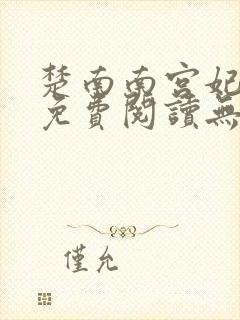 楚南南宮妃
免費閱讀無
僅允